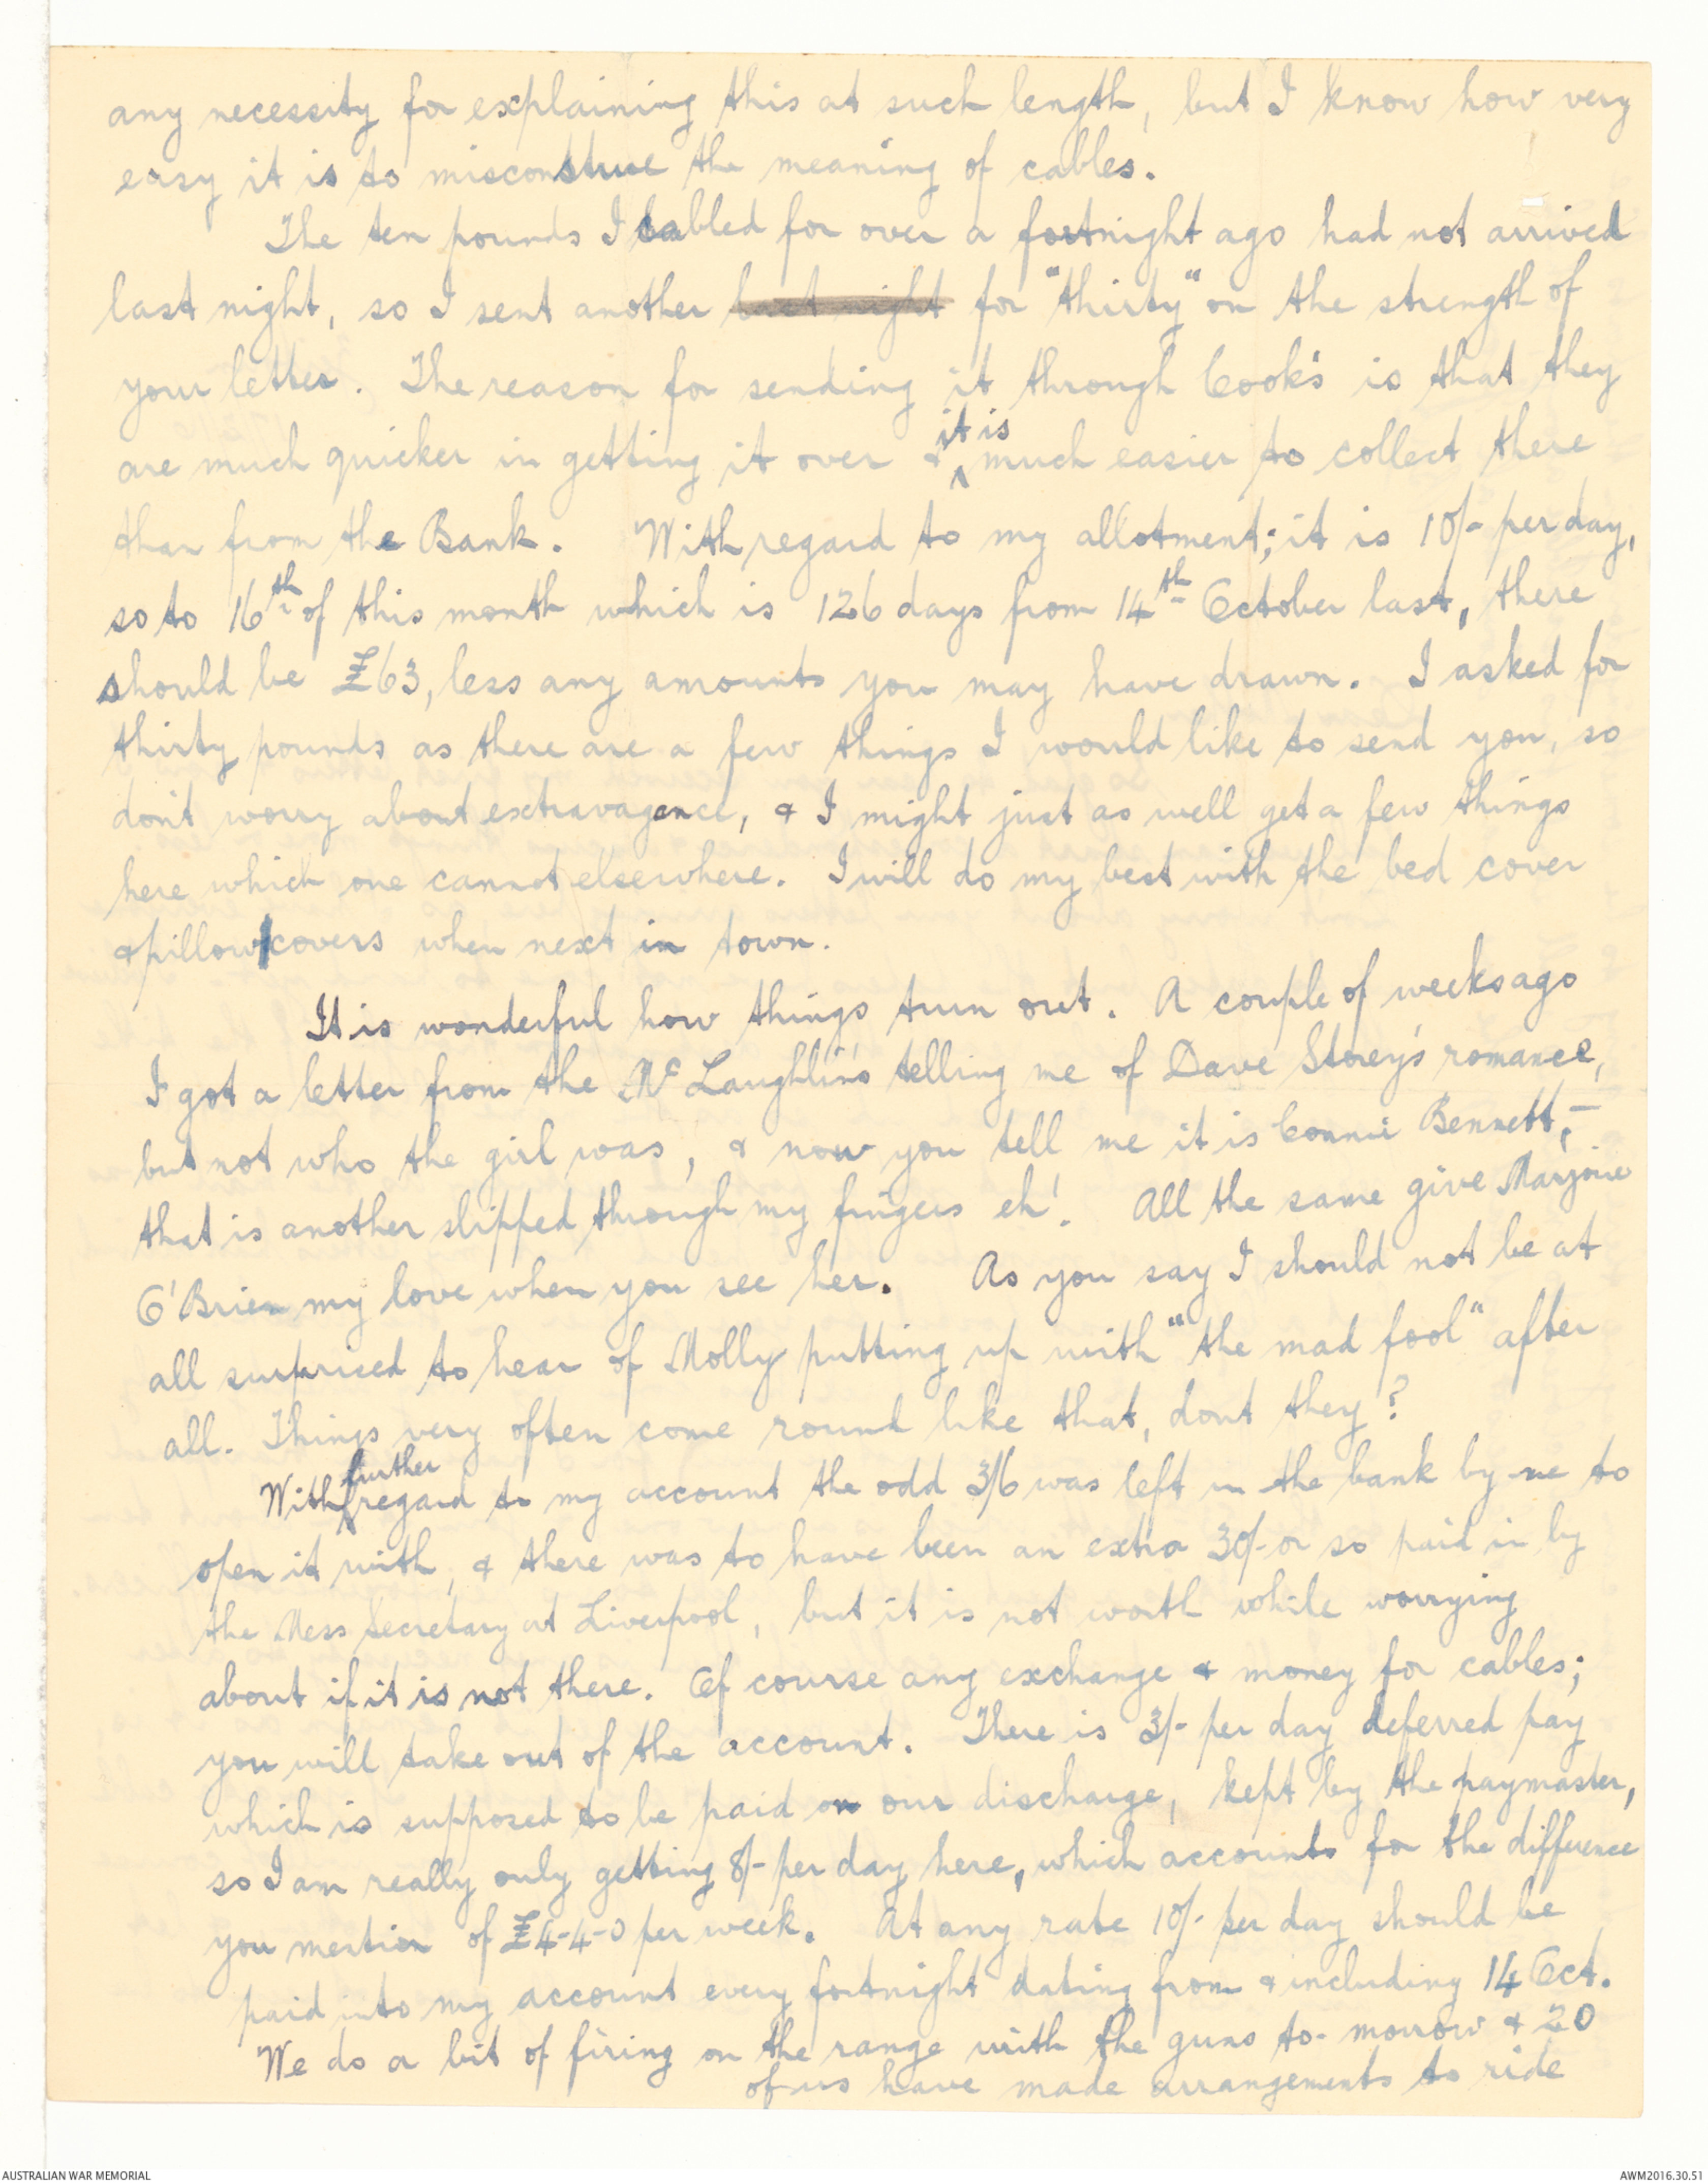 any necessity for explaining this at such length, but I know how very
easy it is to misconstrue the meaning of cables.
The ten pounds I cabled for over a fortnight ago had not arrived
last night, so I sent another last night for "thirty" on the strength of
your letter. The reason for sending it through Cook's is that they
are much quicker in getting it over & it is much easier to collect there
than from the Bank. With regard to my allotment; it is 10/- per day,
so to 16th of this month which is 126 days from 14th October last, there
should be £63, less any amounts you may have drawn. I asked for
thirty pounds as there are a few things I would like to send you, so
don't worry about extravagence, & I might just as well get a few things
here which one cannot elsewhere. I will do my best with the bed cover
& pillow covers when next in town.
It is wonderful how things turn out. A couple of weeks ago
I got a letter from the McLaughlin's telling me of Dave Storey's romance,
but not who the girl was, & now you tell me it is Connie Bennett, -
that is another slipped through my fingers eh! All the same give Marjorie
O'Brien my love when you see her. As you say I should not be at
all surpriced to hear of Molly putting up with "the mad fool" after
all. Things very often come round like that, dont they?
With further regard to my account the odd 3/6 was left in the bank by me to
open it with, & there was to have been an extra 30/- or so paid in by
the Mess Secretary at Liverpool, but it is not worth while worrying
about if it is not there. Of course any exchange & money for cables;
you will take out of the account. There is 3/- per day deferred pay
which is supposed to be paid on our discharge, kept by the paymaster,
so I am really only getting 8/- per day here, which accounts for the difference
you mention of £4-4-0 per week. At any rate 10/- per day should be
paid into my account every fortnight dating from & including 14 Oct.
We do a bit of firing on the range with the guns to-morrow & 20
of us have made arrangements to ride
AUSTRALIAN WAR MEMORIAL
AWM2016.30.51